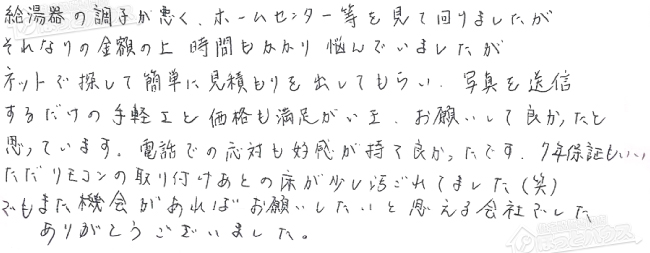 給湯器の調子が悪く、ホームセンター等を見て回りましたが
それなりの金額の上 時間もかかり 悩んでいましたが
ネットで探して簡単に見積もりを出してもらい、写真を送信
するだけの手軽さと価格も満足がいき、お願いして良かったと
思っています。電話での応対も好感が持て良かったです。7年保証もいい
ただリモコンの取り付けあとの床が少し汚ごれてました(笑)
でもまた機会があればお願いしたいと思える会社でした
ありがとうございました。